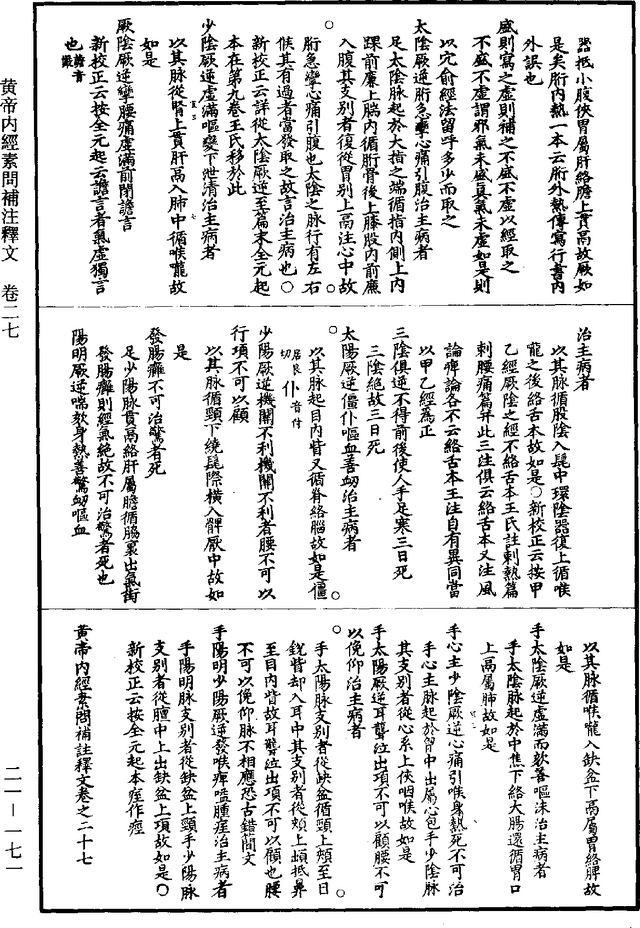 器抵小腹俠胃屬肝絡膽上貫鬲故厥如
是矣䯒內熱一本云䯒外熱傳寫行書內
外誤也
盛則寫之虛則補之不盛不虛以經取之
不盛不虛謂邪氣未盛真氣未虛如是則
以穴俞經法留呼多少而取之
太陰厥逆䯒急攣心痛引腹治主病者
足太陰脉起於大指之端循指內側上內
踝前廉上腨內循䯒骨後上膝股內前廉
入腹其支別者復從胃別上鬲注心中故
䯒急攣心痛引腹也太陰之脉行有左右
候其有過者當發取之故言治主病也○
新校正云詳從太陰厥逆至篇末全元起
本在第九卷王氏移於此
少陰厥逆虛滿嘔變下泄清治主病者
以其脉從腎上貫肝鬲入肺中循喉嚨故
如是
厥陰厥逆攣腰痛虛滿前閉譫言
新校正云按全元起云譫言者氣虛獨言
也
治主病者
以其脉循股陰入髦中環陰器復上循喉
嚨之後絡舌本故如是○新校正云按甲
乙經厥陰之經不絡舌本王氏註刺熱篇
刺腰痛篇并此三注俱云絡舌本又注風
論痺論各不云絡舌本王注自有異同當
以甲乙經為正
三陰俱逆不得前後使人手足寒三日死
三陰絕故三日死
太陽厥逆僵仆嘔血善衄治主病者
以其脉起目內眥又循脊絡腦故如是僵
居良切 仆音付
少陽厥逆機關不利機關不利者腰不可以
行項不可以顧
以其脉循頸下繞髦際橫入髀厭中故如
是
發腸癰不可治驚者死
足少陽脉貫鬲絡肝屬膽循脇裏出氣街
發腸癰則經氣絕故不可治驚者死也
陽明厥逆喘欬身熱善驚衄嘔血
以其脉循喉嚨入缺盆下鬲屬胃絡脾故
如是
手太陰厥逆虛滿而欬善嘔沫治主病者
手太陰脉起於中焦下絡大腸還循胃口
上鬲屬肺故如是
手心主少陰厥逆心痛引喉身熱死不可治
手心主脉起於胷中出屬心包手少陰脉
其支別者從心系上俠咽喉故如是
手太陽厥逆耳聾泣出項不可以顧腰不可
以俛仰治主病者
手太陽脉支別者從缺盆循頸上頰至目
銳眥却入耳中其支別者從頰上䪼抵鼻
至目內眥故耳聾泣出項不可以顧也腰
不可以俛仰脉不相應恐古錯簡文
手陽明少陽厥逆發喉痺嗌腫痓治主病者
手陽明脉支別者從缺盆上頸手少陽脉
支別者從膻中上出缺盆上項故如是○
新校正云按全元起本痓作痙
黃帝內經素問補註釋文卷之二十七
黄帝内經素問補注釋文　卷二七
二一—一七一